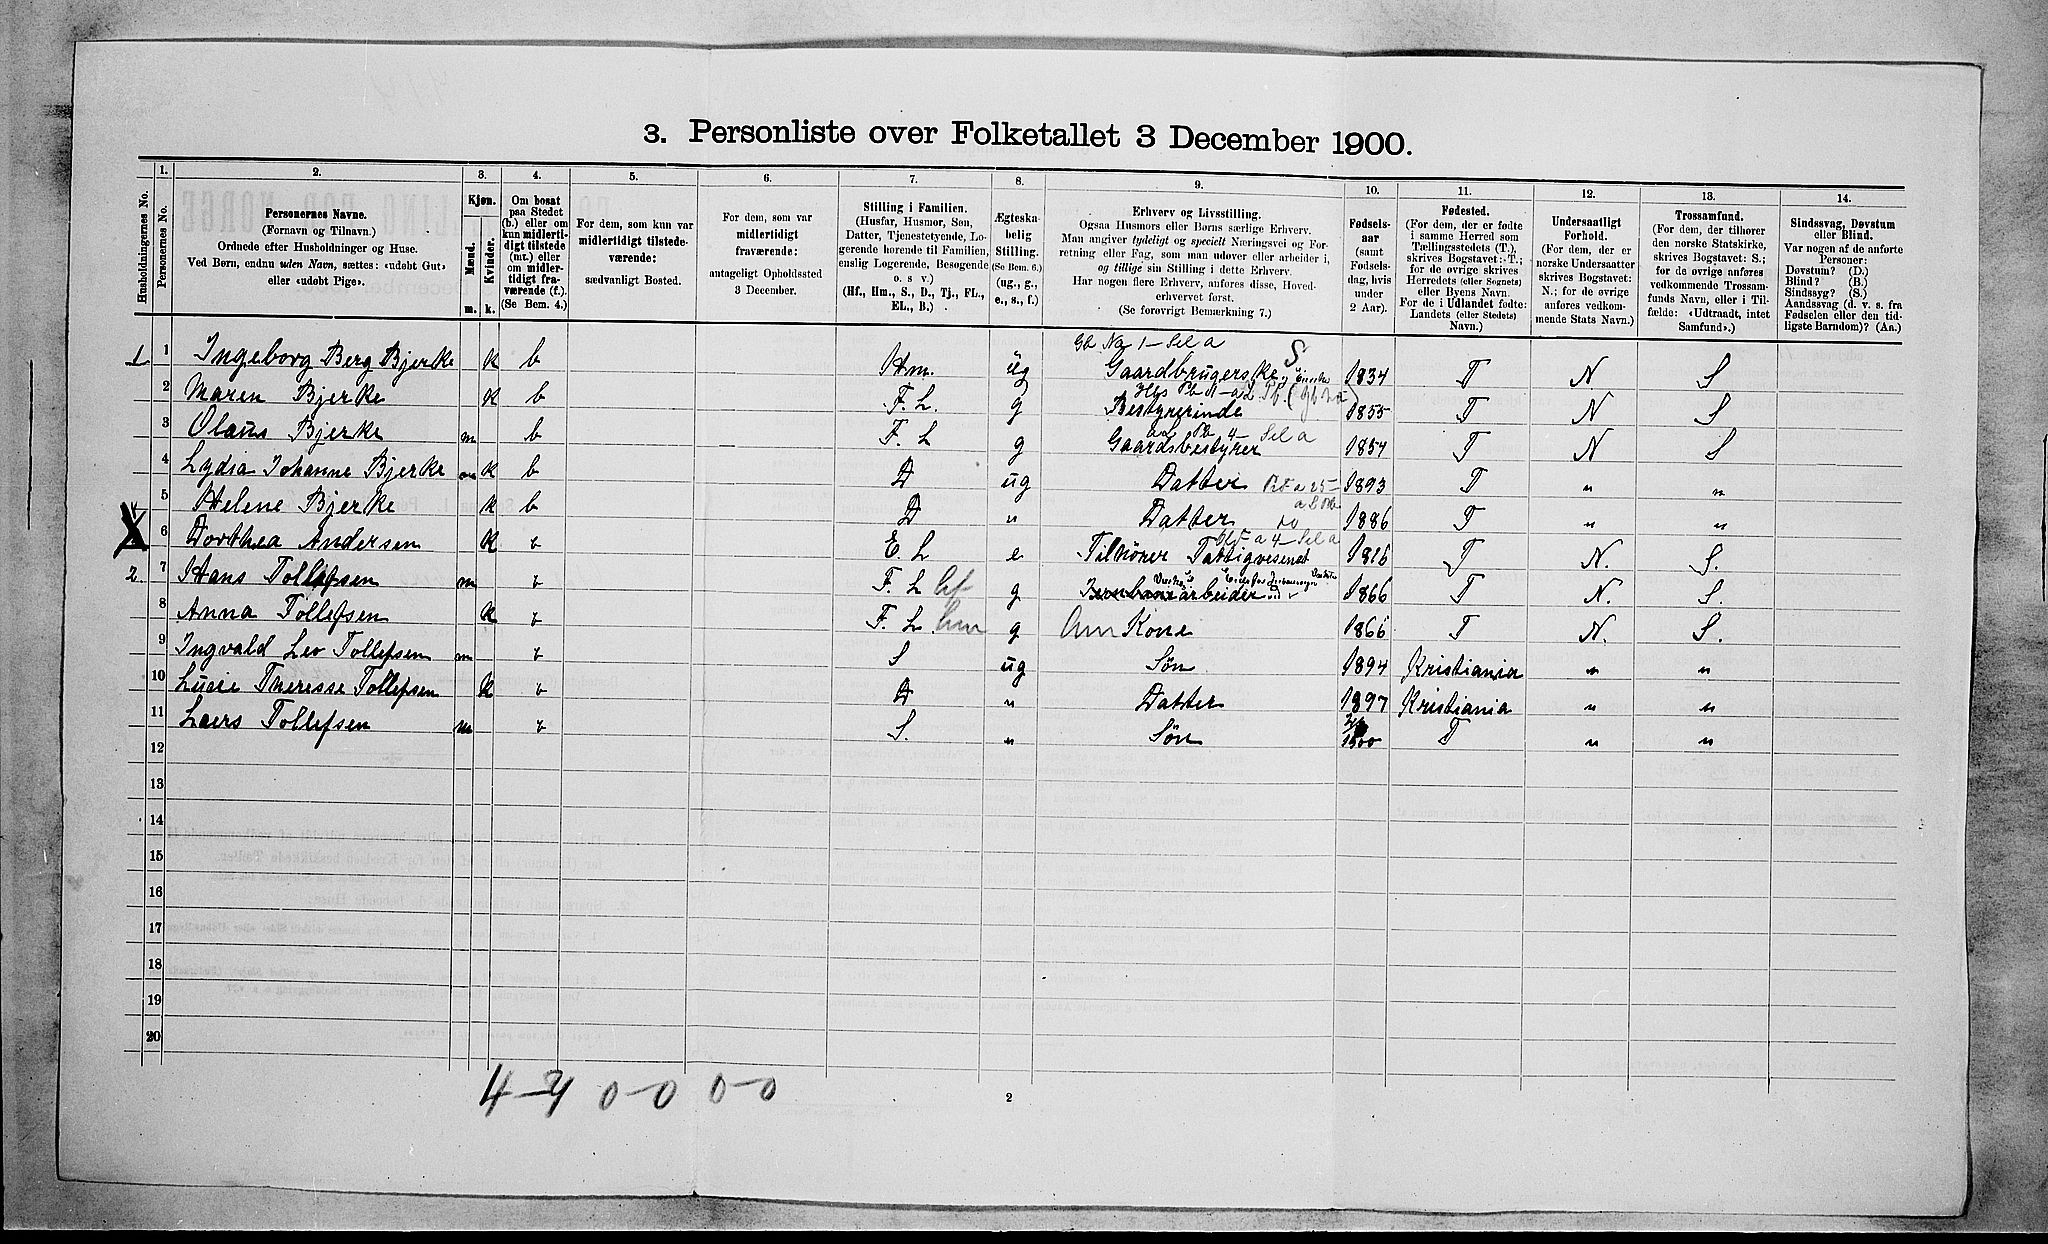 3. Personliste over Folketallet 3 December 1900.
Husholdningernes No.
1. Personernes No.
2. Personernes Navne.
(Fornavn og Tilnavn.)
Ordnede efter Husholdninger og Huse.
Ved Børn, endnu uden Navn, sættes: «udøbt Gut»
eller «udøbt Pige».
3. Kjøn.
Mænd. Kvinder.
m. k.
4. Om bosat
paa Stedet
(b.) eller om
kun midlerti-
digt tilstede
(mt.) eller
om midler-
tidigt fra-
værende (f.).
(Se Bem. 4.)
5. For dem, som kun var
midlertidigt tilstede-
værende:
sædvanligt Bosted.
6. For dem, som var
midlertidigt
fraværende:
antageligt Opholdssted
3 December.
7. Stilling i Familien.
(Husfar, Husmor, Søn,
Datter, Tjenestetyende, Lo-
gerende hørende til Familien,
enslig Logerende, Besøgende
o. s v.)
(Hf., Hm., S., D., Tj., FL.,
EL., B.)
8. Ægteska-
belig
Stilling.
(Se Bem. 6.)
(ug., g.,
e., s., f.)
9. Erhverv og Livsstilling.
Ogsaa Husmors eller Børns særlige Erhverv.
Man angiver tydeligt og specielt Næringsvei og For-
retning eller Fag, som man udøver eller arbeider i,
og tillige sin Stilling i dette Erhverv.
Har nogen flere Erhverv, anføres disse, Hoved-
erhvervet først.
(Se forøvrigt Bemærkning 7.)
10. Fødsels-
aar
(samt
Fødsels-
dag, hvis
under
2 Aar).
11. Fødested.
(For dem, der er fødte
i samme Herred som
Tællingsstedets (T.),
skrives Bogstavet: T.;
for de øvrige skrives
Herredets (eller Sognets)
eller Byens Navn.
For de i Udlandet fødte:
Landets (eller Stedets)
Navn.)
12. Undersaatligt
Forhold.
(For dem, der er
norske Undersaatter
skrives Bogstavet:
N.; for de øvrige
anføres vedkom-
mende Stats Navn.)
13. Trossamfund.
(For dem, der tilhører
den norske Statskirke,
skrives Bogstavet: S.;
for de øvrige anføres
vedkommende Trossam-
funds Navn, eller i Til-
fælde: «Udtraadt, intet
Samfund».)
14. Sindssvag, Døvstum
eller Blind.
Var nogen af de anførte
Personer:
Døvstum? (D.)
Blind? (B.)
Sindssyg? (S.)
Aandssvag (d. v. s. fra
Fødselen eller den tid-
ligste Barndom)? (Aa.)
1 1 Ingeborg Berg Bjerke k b Hm. ug Gaardbrugerske S 1834 T N S
2 Maren Bjerke k b F. L. g Bestyrerinde 1855 T N S
3 Olaus Bjerke m b F. L g Gaardsbestyrer 1854 T N S
4 Lydia Johanne Bjerke k b D ug Datter 1893 T " "
5 Helene Bjerke k b D " Datter 1886 T " "
6 Dorthea Andersen k E. L e Tilhører Fattigvesenet 1816 T N. S.
2. 7 Hans Tollefsen m F. L hf g Jernbanearbeider 1866 T N. S.
8 Anna Tollefsen k F. L. hm g Kone 1866 T N. S.
9 Ingvald Leo Tollefsen m S ug Søn 1894 Kristiania " "
10 Lucie Theresse Tollefsen k D " Datter 1897 Kristiania " "
11 Laers Tollefsen m S. " Søn 1900 T " "
12
13
14
15
16
17
18
19
20
4-7 0-0 0-0
2